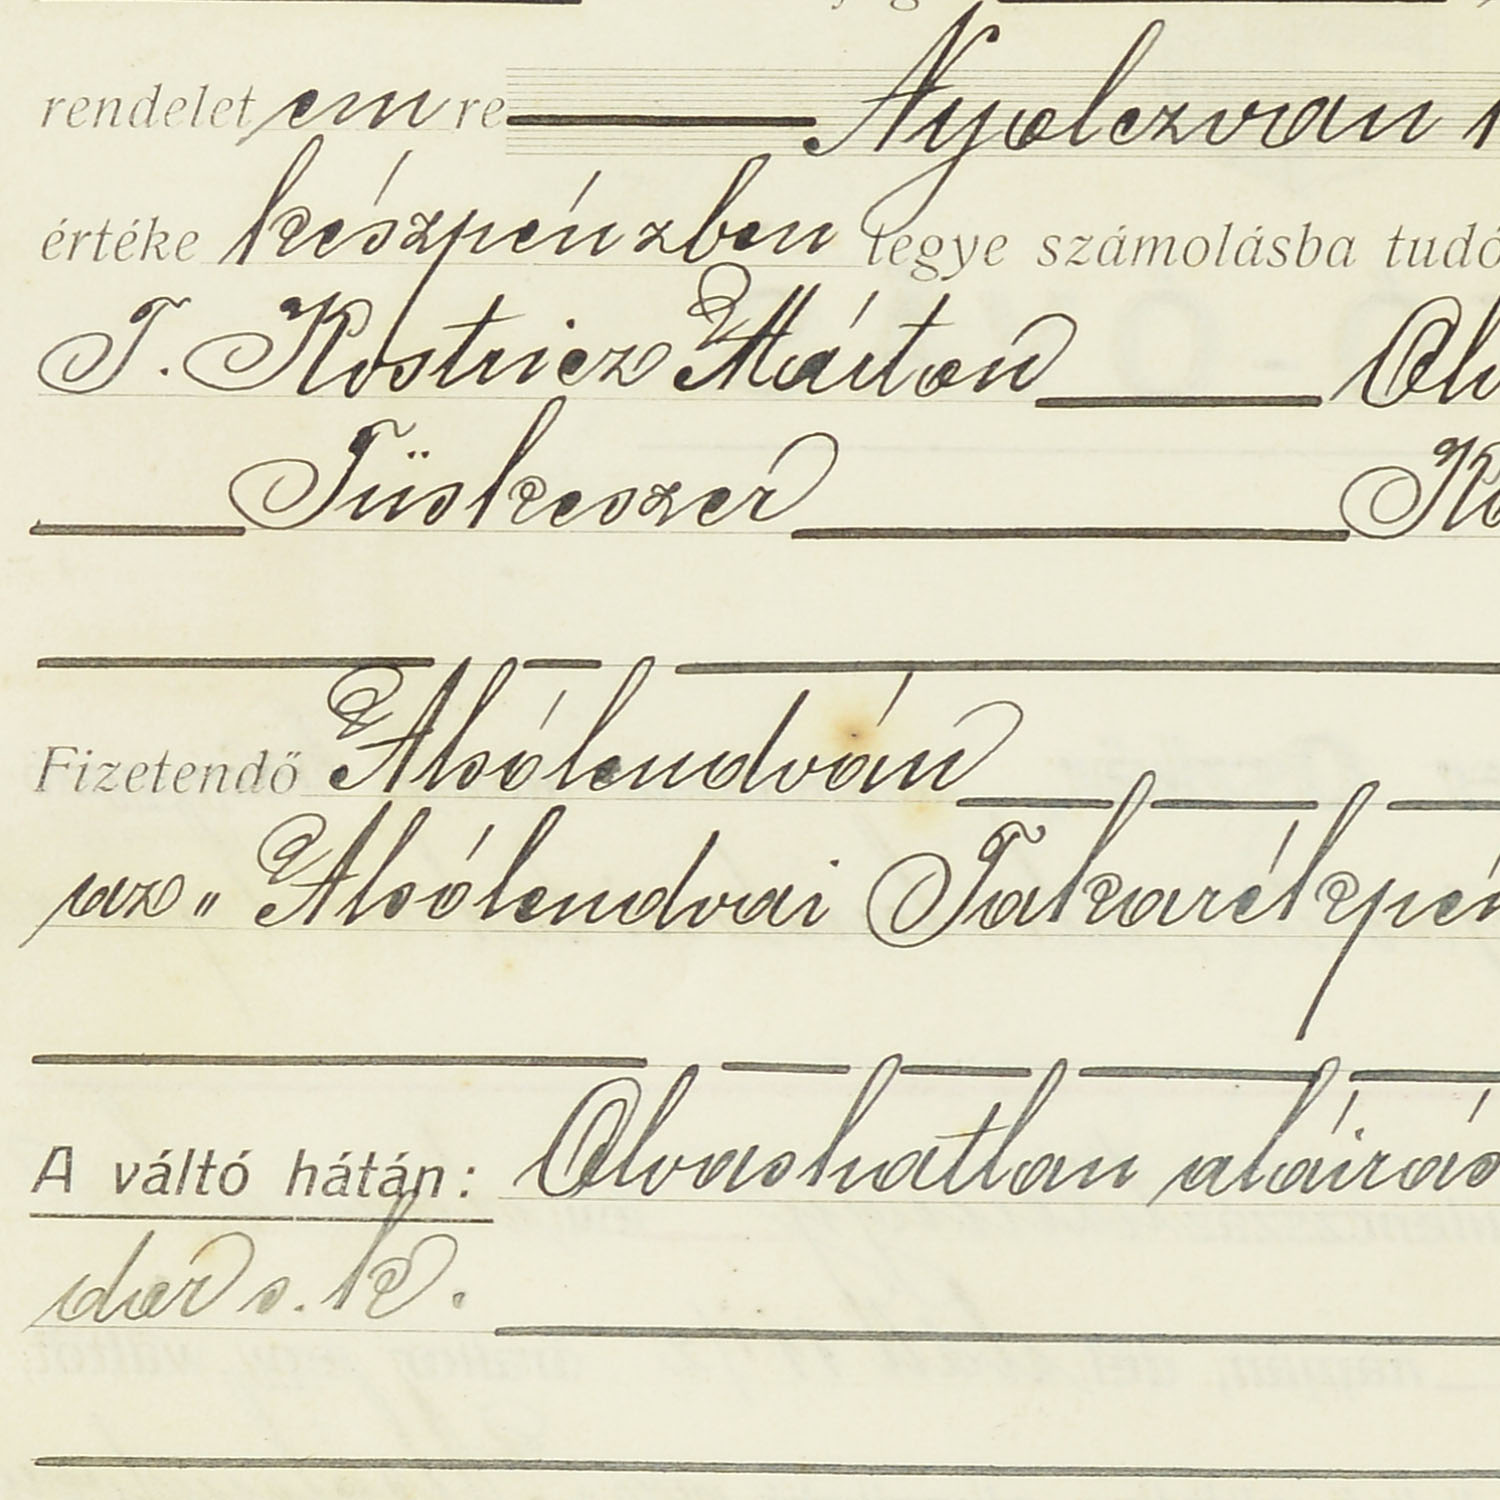 rendelet em re Nyolczvan
értéke készpénzben tegye számolásba tudó
T. Kostricz Márton Olv
Tüskeszer Ko
Fizetendő Alsólendván
az „ Alsólendvai Takarékpén
A váltó hátán: Olvashatlan aláirás
dor s. k.